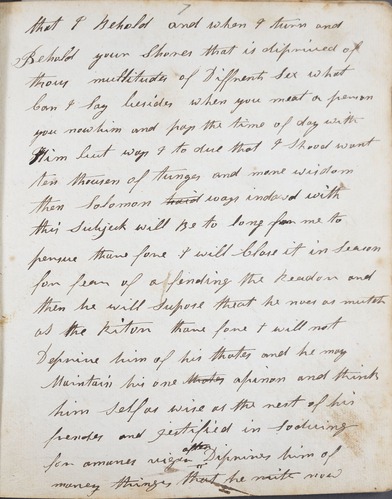 7
that I behold and when I turn and
Behold your Shores that is diprived of
thous multitudes of Diffrent Sex what
Can I Say besides when you meat a person
you now him and pass the time of day with
Him but was I to due that I shood want
ten thousen of tunges and more wisdom
then Solomon ways indowd with
this Subjeck will Be to long for me to
persue thare fore I will Close it in Season
for fear of a fending the Reador and
then he will Supose that he noes as mutch
as the Riton thare fore I will not
Deprive him of his thotes and he may
Maintain his one thotes apinon and think
him Self as wise as the rest of his
frendes and justified in So during
for amanes often Diprives him of
maney thinges that he mite now